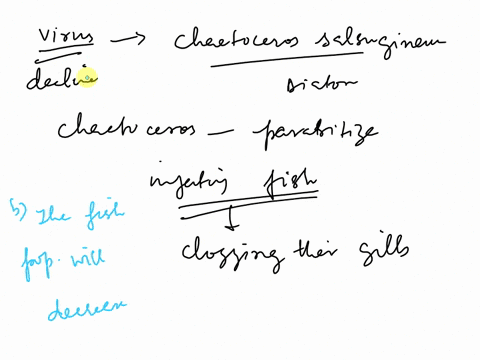 virus → chaetoceros salsugineum
decline
diatom
chaetoceros - parasitize
infecting fish
↓
clogging their gills
b) The fish
pop. will
decrease